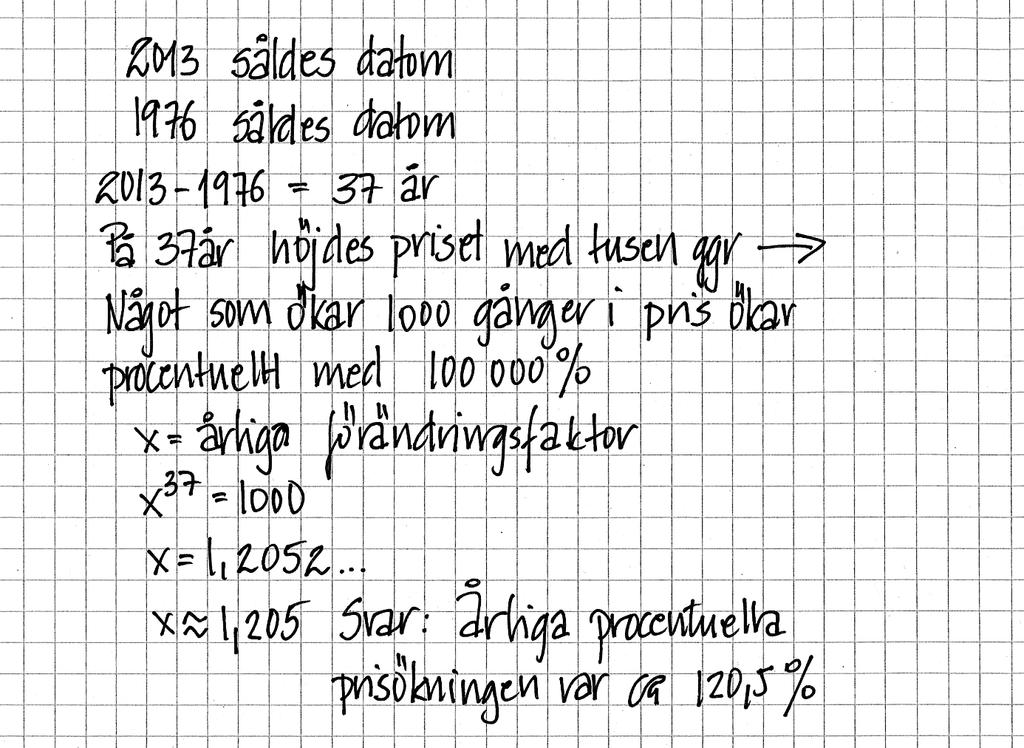 2013 såldes datorn
1976 såldes datorn
2013-1976 = 37 år
På 37år höjdes priset med tusen ggr →
Något som ökar 1000 gånger i pris ökar
procentuellt med 100 000 %
x = årliga förändringsfaktor
x³⁷ = 1000
x = 1,2052...
x ≈ 1,205 Svar: Årliga procentuella
prisökningen var ca 120,5 %